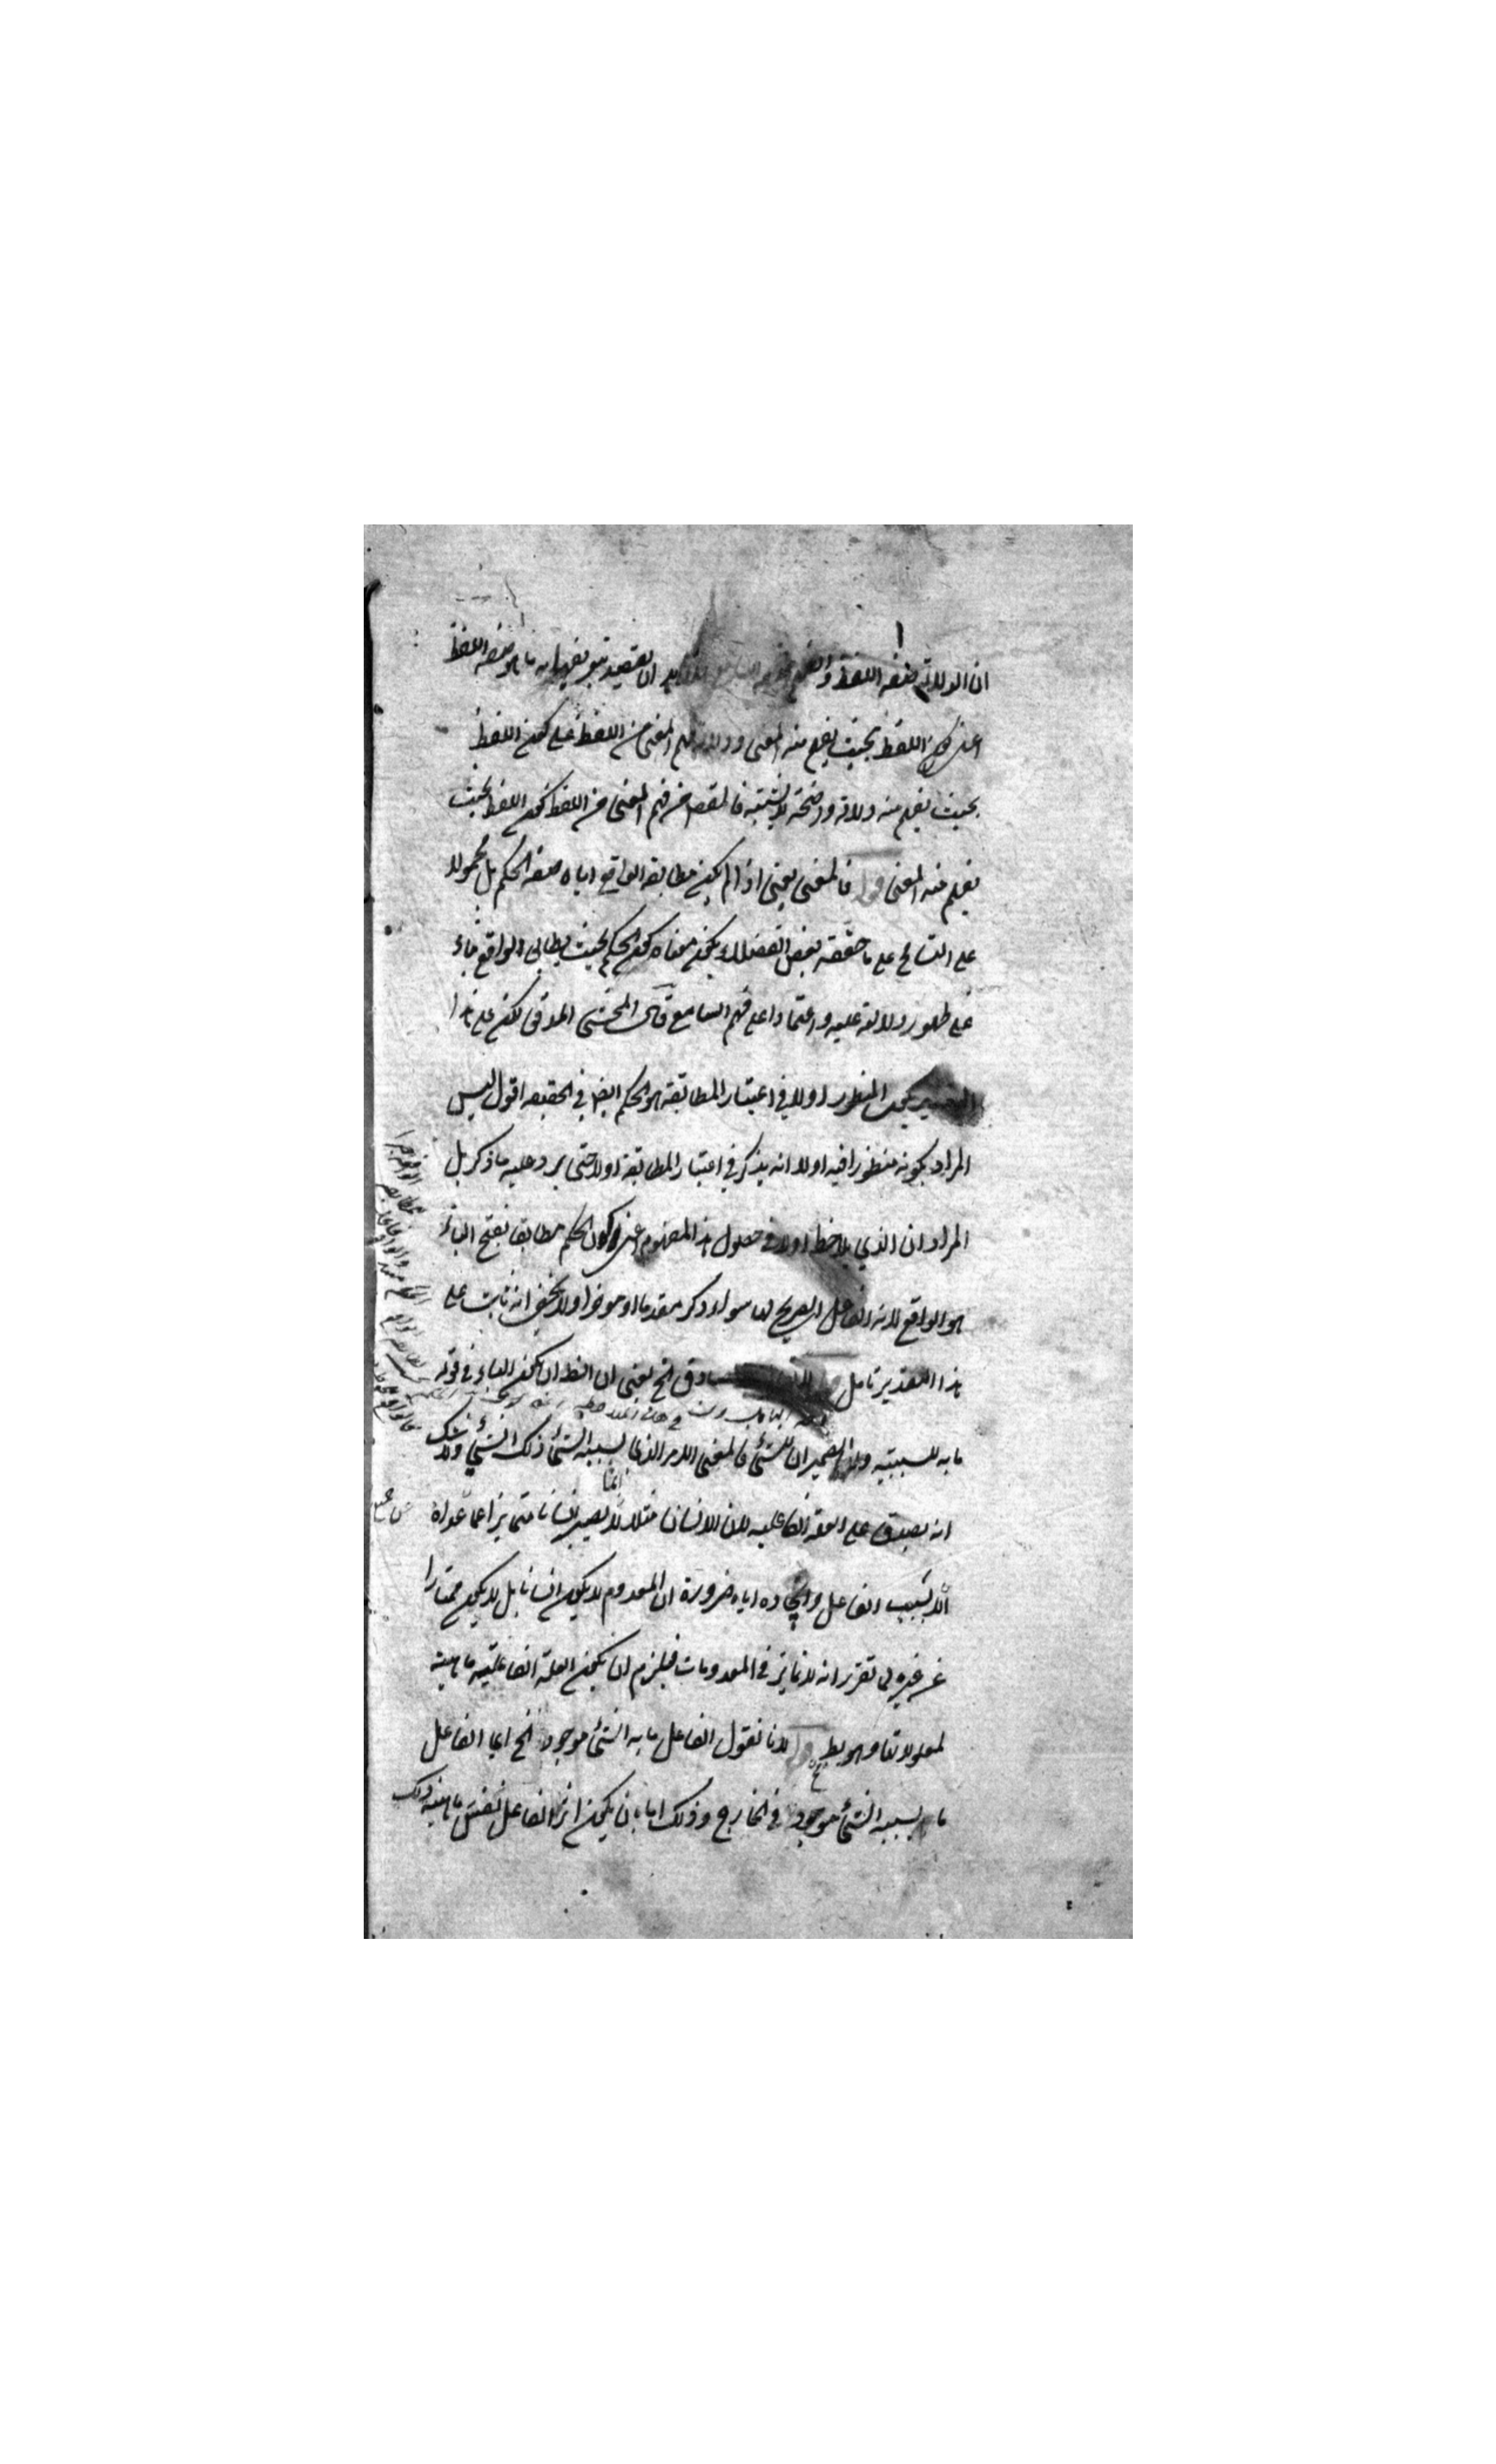 ان الدلالة صفة اللفظ والفهم صفة السامع ان يقصد تعريفها به ما هو صفة اللفظ
اعني كون اللفظ بحيث يفهم منه المعنى ودلالة فهم المعنى من اللفظ على كون اللفظ
بحيث يفهم منه دلالة واضحة لا يشتبه فالمقصود من فهم المعنى من اللفظ كون اللفظ بحيث
يفهم منه المعنى قوله فالمعنى يعنى اذا لم يكن مطابقة الواقع اياه صفة الحكم بل محمولا
على التسامح على ما حققه بعض الفضلاء يكون معناه كون الحكم بحيث يطابق الواقع بناء
على ظهور دلالته عليه واعتمادا على فهم السامع قال المحشى المدقق لكن على هذا
يكون المنظور اولا في اعتبار المطابقة هو الحكم ايضا في الحقيقة اقول ليس
المراد بكونه منظورا فيه اولا انه يذكر في اعتبار المطابقة اولا حتى يرد عليه ما ذكر بل
المراد ان الذي يلاحظ اولا في حصول هذا المفهوم اعنى كون الحكم مطابقا بفتح الباء
هو الواقع لانه الفاعل الصريح لها سواء ذكر مقدما او موخرا ولا يخفى انه ثابت على
هذا التقدير تامل صادق الخ يعنى ان الظ ان يكون الباء في قوله
ما به للسببية والضميران للشئ فالمعنى الامر الذى بسببه الشئ ذلك الشئ ولا شك
انه يصدق على العلة الفاعلية لان الانسان مثلا انما يصير انسانا متمايزا عما عداه
الا بسبب الفاعل وايجاده اياه ضرورة ان المعدوم لا يكون انسانا بل لا يكون ممتازا
عن غيره لما تقرر انه لا تمايز في المعدومات فيلزم ان يكون العلة الفاعلية ماهية
لمعلولاتها وهو بط قوله لانا نقول الفاعل ما به الشئ موجود الخ اى الفاعل
ما بسببه الشئ موجود في الخارج وذلك اما بان يكون اثر الفاعل نفس ماهية ذلك